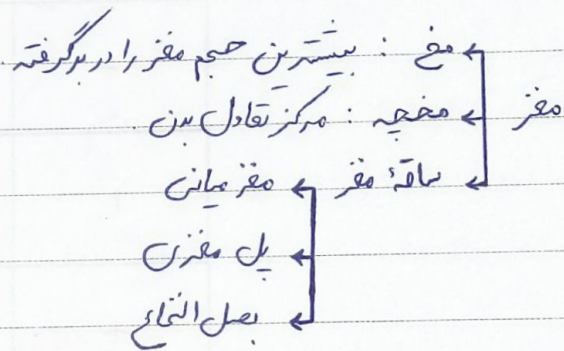 مخ : بیشترین حجم مغز را در بر گرفته.
مغز
مخچه : مرکز تعادل بدن
ساقهٔ مغز
مغز میانی
پل مغزی
بصل النخاع